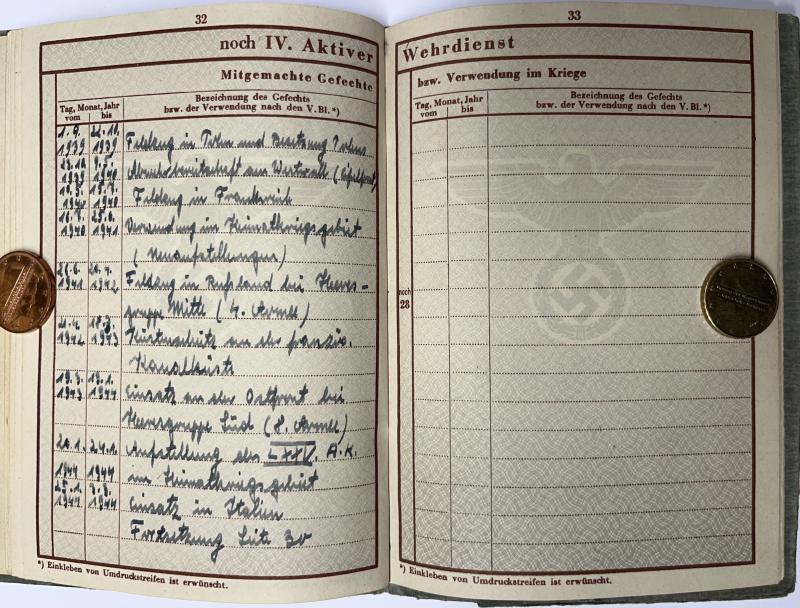 32
noch IV. Aktiver
Mitgemachte Gefechte
Tag, Monat, Jahr
vom bis
Bezeichnung des Gefechts
bzw. der Verwendung nach den V. Bl. *)
1.9. 1939
1939 Feldzug in Polen und Besetzung Polens
1939 1940 Abwehrbereitschaft am Westwall (Eifelfront)
1940 1940 Feldzug in Frankreich
1940 1941 Verwendung im Heimatkriegsgebiet
(Neuaufstellungen)
1941 1942 Feldzug in Rußland bei Heeres-
gruppe Mitte (4. Armee)
1942 1943 Küstenschutz an der französ.
Kanalküste
19.3. 19.1.
1943 1944 Einsatz an der Ostfront bei
Heeresgruppe Süd (8. Armee)
20.1. 24.1. Aufstellung des LXXV. A.K.
1944 1944 im Heimatkriegsgebiet
25.1.
1944 1944 Einsatz in Italien
Fortsetzung Seite 30
*) Einkleben von Umdruckstreifen ist erwünscht.
33
Wehrdienst
bzw. Verwendung im Kriege
Tag, Monat, Jahr
vom bis
Bezeichnung des Gefechts
bzw. der Verwendung nach den V. Bl. *)
noch
28
*) Einkleben von Umdruckstreifen ist erwünscht.